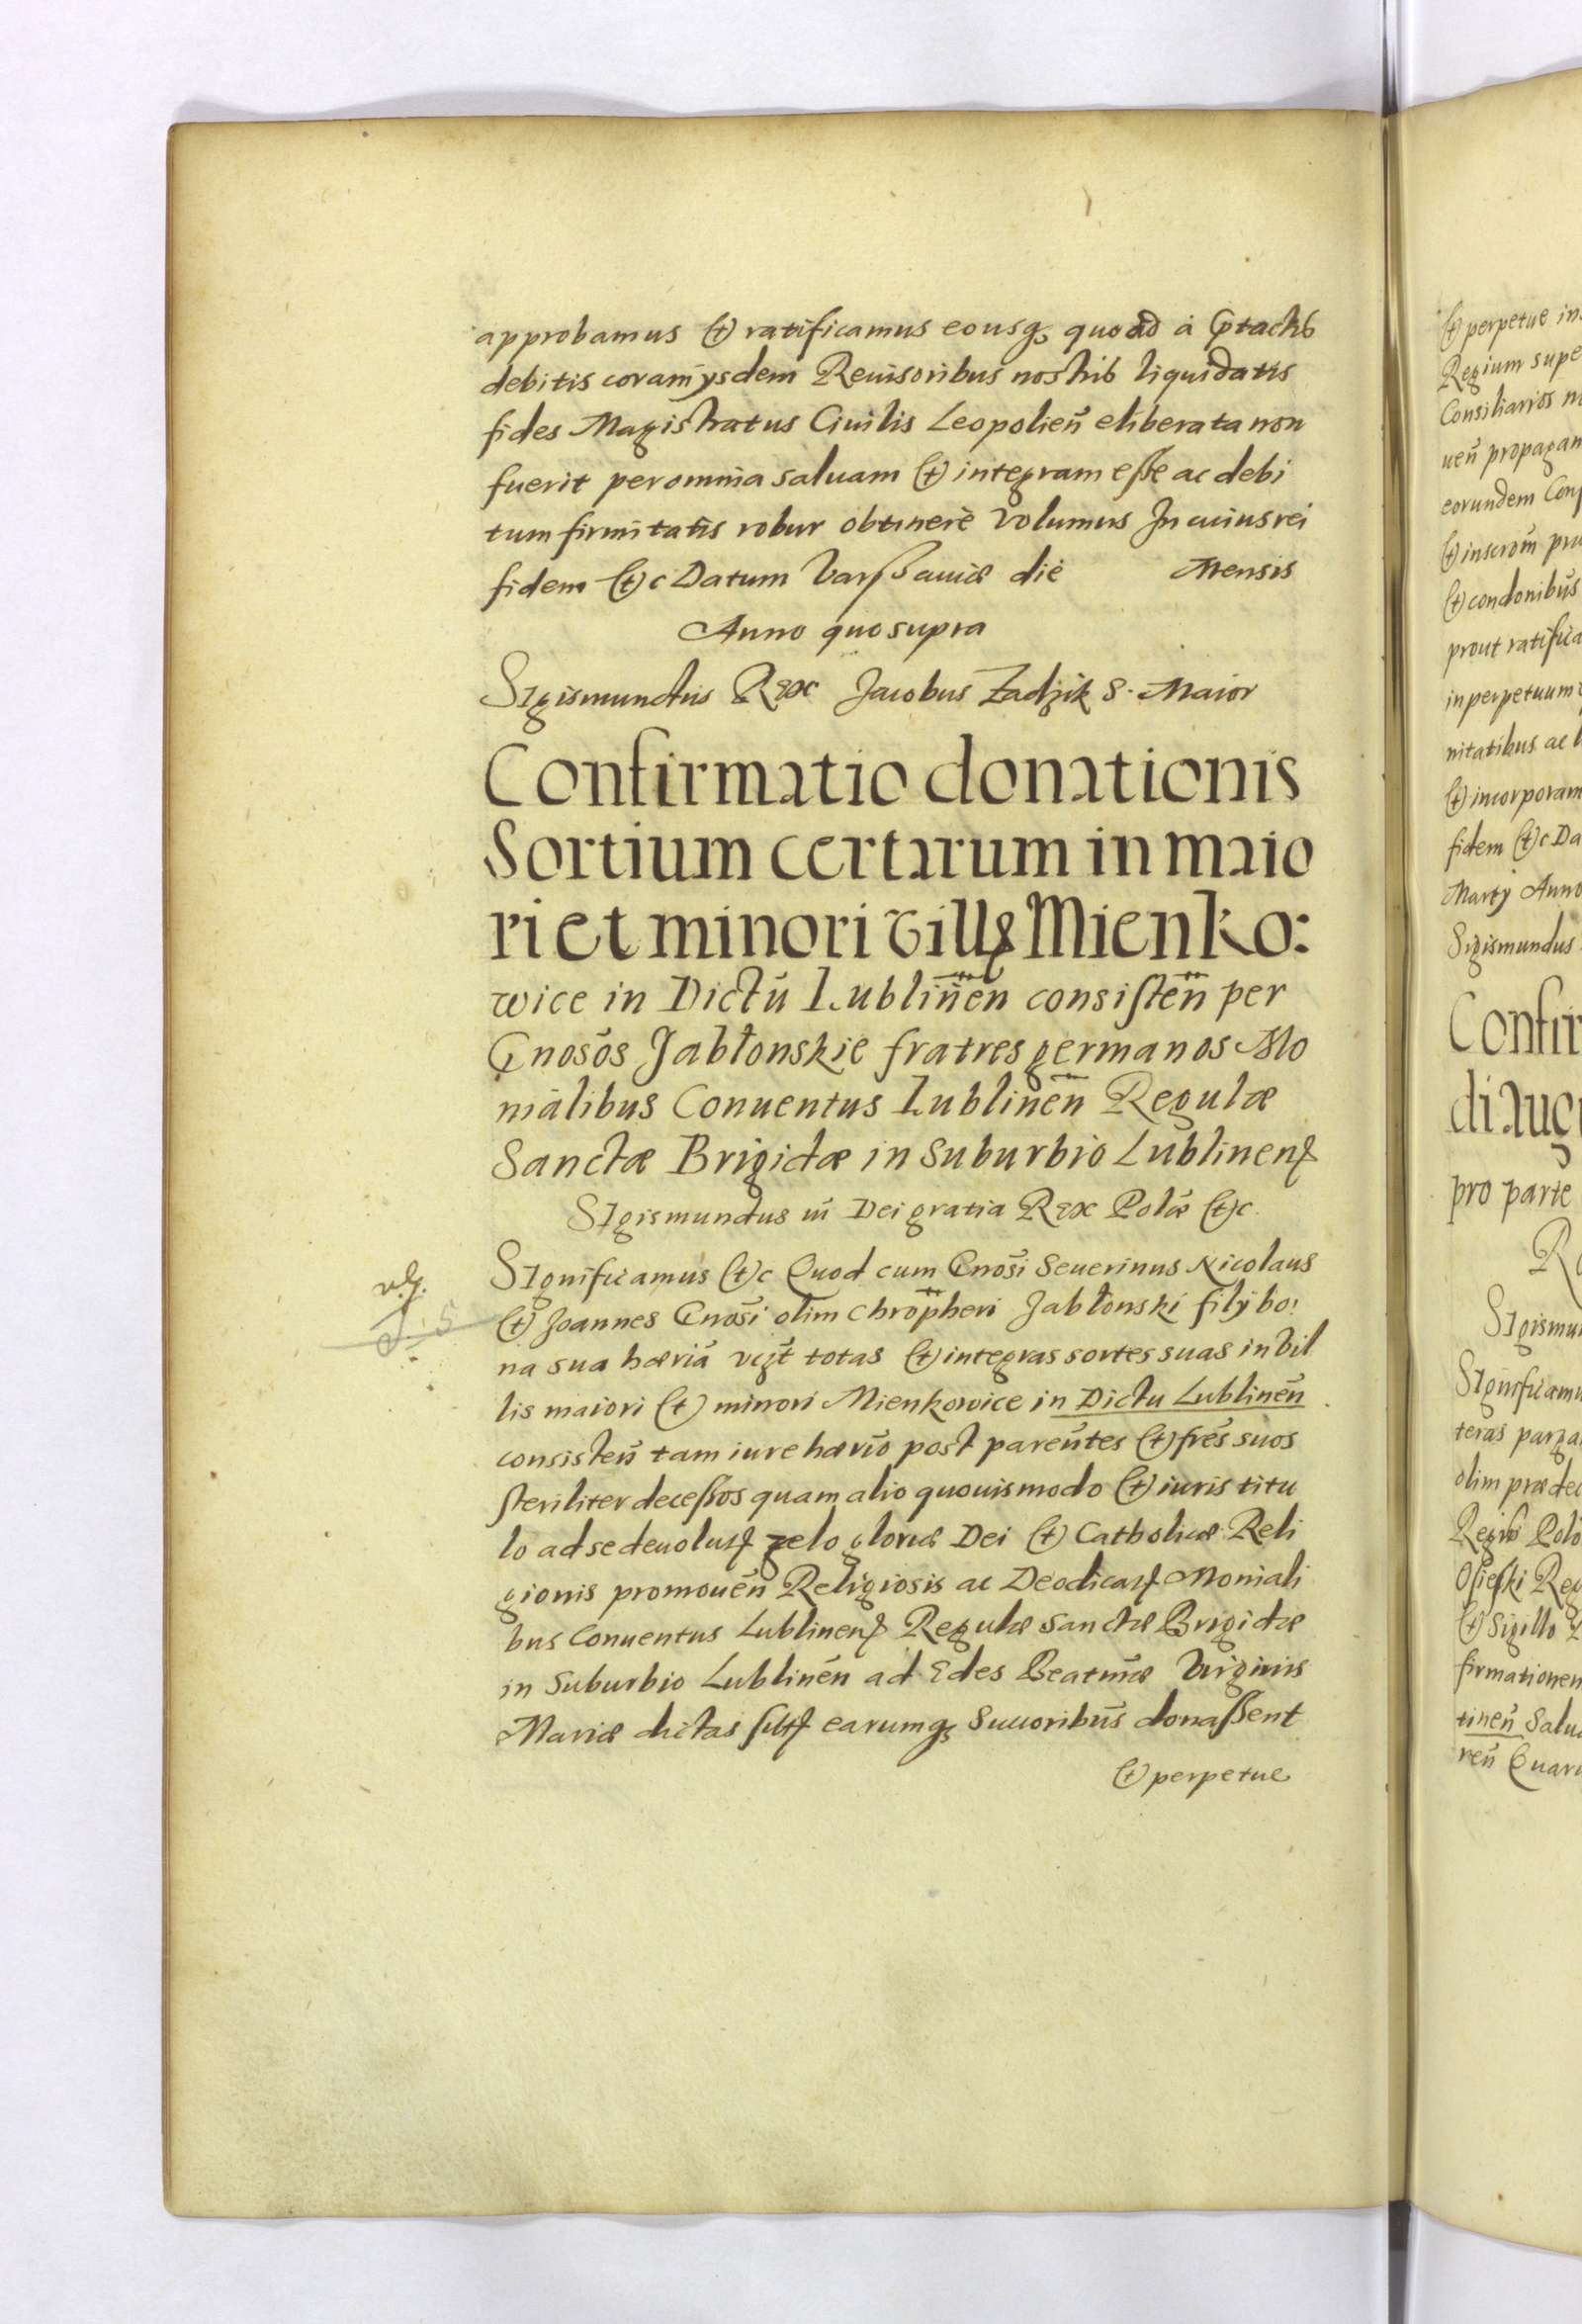 approbamus et ratificamus eousq; quoad à Gptactis
debitis coram ysdem Reuisoribus nostris liquidatis
fides Magistratus Ciuilis Leopolień eliberata non
fuerit per omnia saluam et integram eſſe ac debi
tum firmitatis robur obtinere volumus In cuius rei
fidem etc Datum Varſſauiæ die Mensis
Anno quo supra
SIgismundus Rex Jacobus Zadzik S. Maior
Confirmatio donationis
Sortium certarum in maio
ri et minori villę Mienko:
wice in Dictũ Lublinen̄ consiſten̄ per
Gnosōs Jabłonskie fratres germanos Mo
nialibus Conuentus Lublinen̄ Regulæ
Sanctæ Brigidæ in Suburbio Lublinenſ
SIgismundus iii Dei gratia Rex Polōæ etc
SIgnificamus etc Quod cum Gnosi Seuerinus Nicolaus
et Joannes Gnosi olim Chropheri Jabłonski filÿ bo:
na sua hæriā vizt totas et integras sortes suas in vil
lis maiori et minori Mienkowice in Dictu Lublinen̄
consisten̄ tam iure hæriō post parentes et fres suos
ſteriliter deceſſos quam alio quouismodo et iuris titu
lo ad se deuolutſ zelo gloriæ Dei et Catholicæ Reli
gionis promouen̄ Religiosis ac Deodicatſ Moniali
bus Conuentus Lublinenſ Regulæ Sanctæ Brigidæ
in Suburbio Lublinen̄ ad Edes Beatmæ Virginis
Mariæ dictas ſitſ earumq; Succoribus donaſſent
et perpetue
et perpetue in
Regium supe
Consiliarios n
uen̄ propagan
eorundem Con
et inscrom̄ pr
et condonibus
prout ratifica
in perpetuum
nitatibus ac l
et incorporam
fidem etc Da
Martÿ Anno
Sigismundus
Confir
di Aug
pro parte
R
SIgismu
SIgnificam
teras parga
olim præde
Regib Polō
Oſieſki Reg
et Sigillo
firmationem
tinen̄ Salu
ren̄ Quar